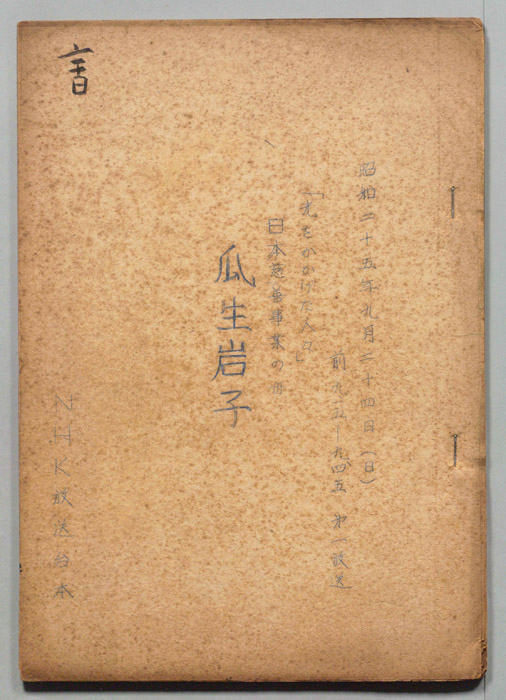 昭和二十五年九月二十四日(日)
前九五―九四五 第一放送
「光をかかげた人々」
日本慈善事業の母
瓜生岩子
NHK放送台本